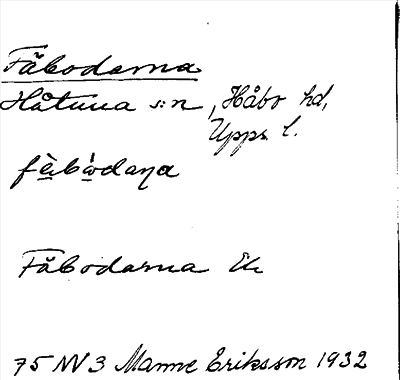 Fäbodarna
Håtuna s:n, Håbo hd,
Upps. l.
fä̀bὼdaɳa
Fäbodarna Ek
75 NV 3 Manne Eriksson 1932